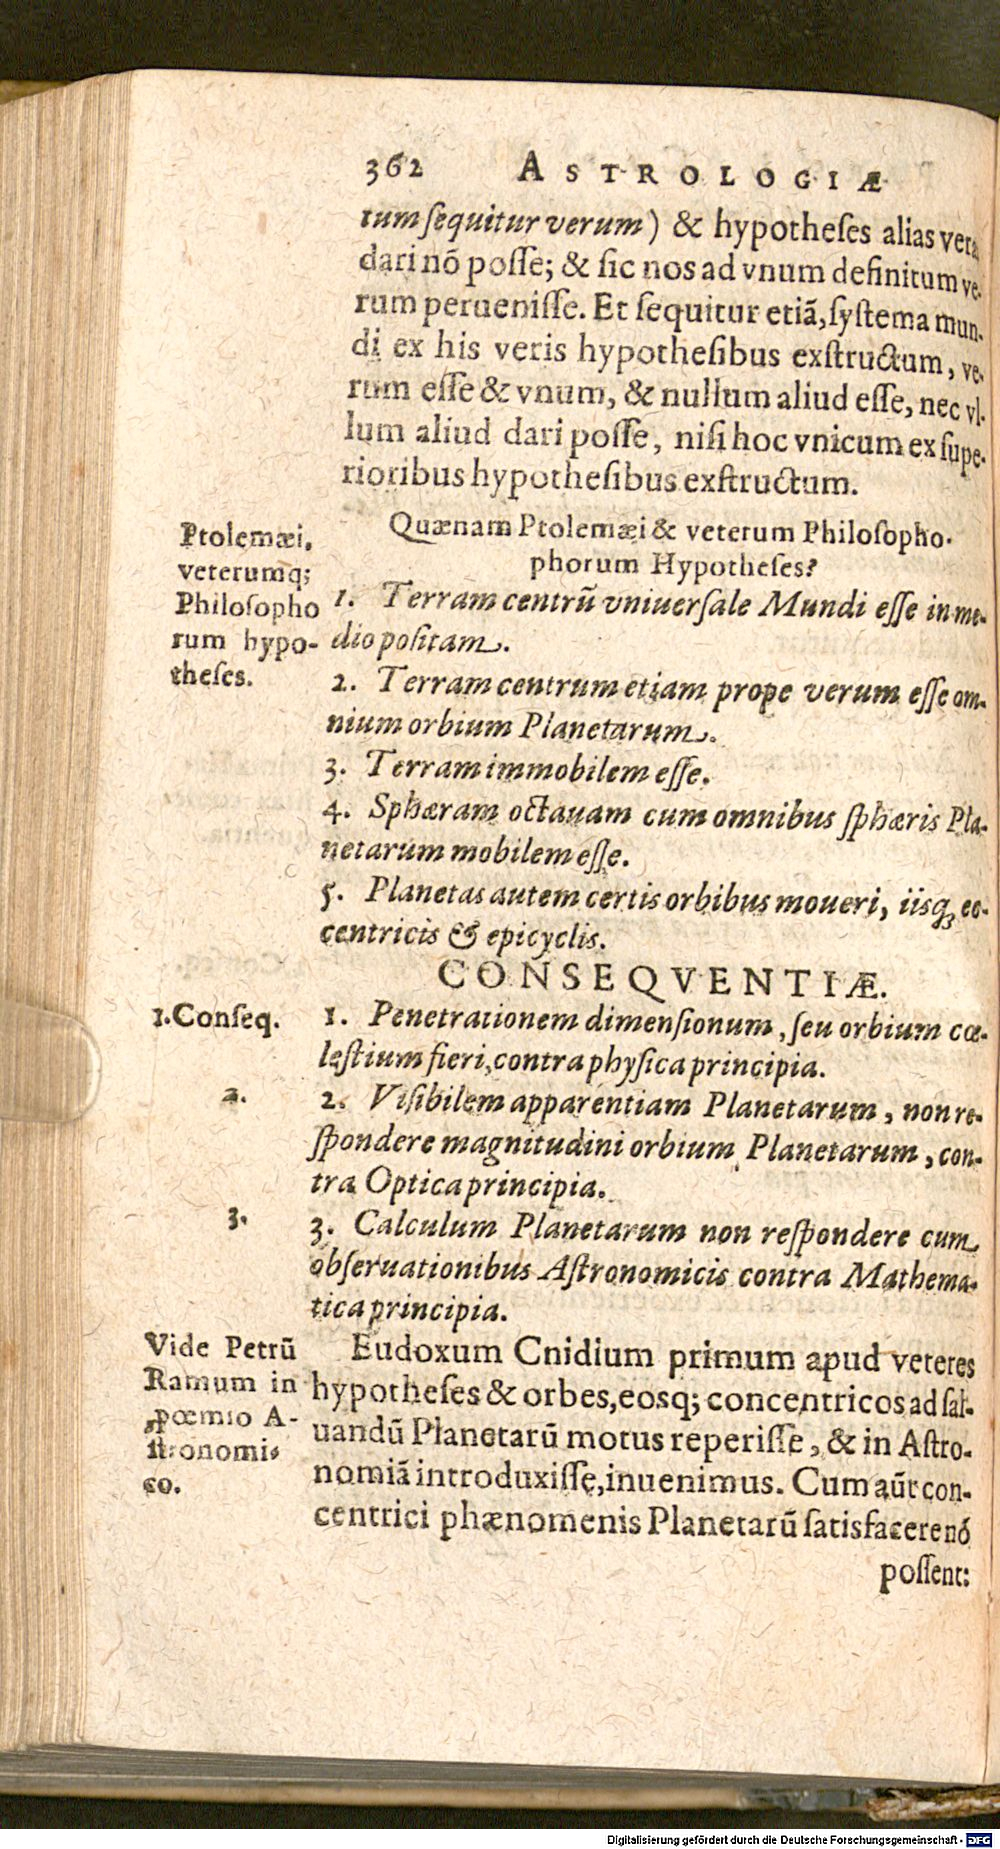 362 ASTROLOGIÆ
tum ſequitur verum) & hypotheſes alias vera
dari nõ poſſe; & ſic nos ad vnum definitum ve-
rum perueniſſe. Et ſequitur etiã, ſyſtema mun-
di ex his veris hypotheſibus exſtructum, ve-
rum eſſe & vnum, & nullum aliud eſſe, nec vl-
lum aliud dari poſſe, niſi hoc vnicum ex ſupe-
rioribus hypotheſibus exſtructum.
Quænam Ptolemæi & veterum Philoſopho-
phorum Hypotheſes?
Ptolemæi,
veterumq;
Philoſopho
rum hypo-
theſes.
1. Terram centrũ vniuerſale Mundi eſſe in me-
dio poſitam.
2. Terram centrum etiam prope verum eſſe om-
nium orbium Planetarum.
3. Terram immobilem eſſe.
4. Sphæram octauam cum omnibus ſphæris Pla-
netarum mobilem eſſe.
5. Planetas autem certis orbibus moueri, iisq; ec-
centricis & epicyclis.
CONSEQVENTIÆ.
1. Conſeq.
1. Penetrationem dimenſionum, ſeu orbium cœ-
leſtium fieri, contra phyſica principia.
2.
2. Viſibilem apparentiam Planetarum, non re-
ſpondere magnitudini orbium Planetarum, con-
tra Optica principia.
3.
3. Calculum Planetarum non reſpondere cum
obſeruationibus Aſtronomicis contra Mathema-
tica principia.
Vide Petrũ
Ramum in
ꝓœmio A-
ſtronomi-
co.
Eudoxum Cnidium primum apud veteres
hypotheſes & orbes, eosq; concentricos ad ſal-
uandũ Planetarũ motus reperiſſe, & in Aſtro-
nomiã introduxiſſe, inuenimus. Cum aũt con-
centrici phænomenis Planetarũ ſatisfacere nõ
poſſent:
Digitalisierung gefördert durch die Deutsche Forschungsgemeinschaft - DFG